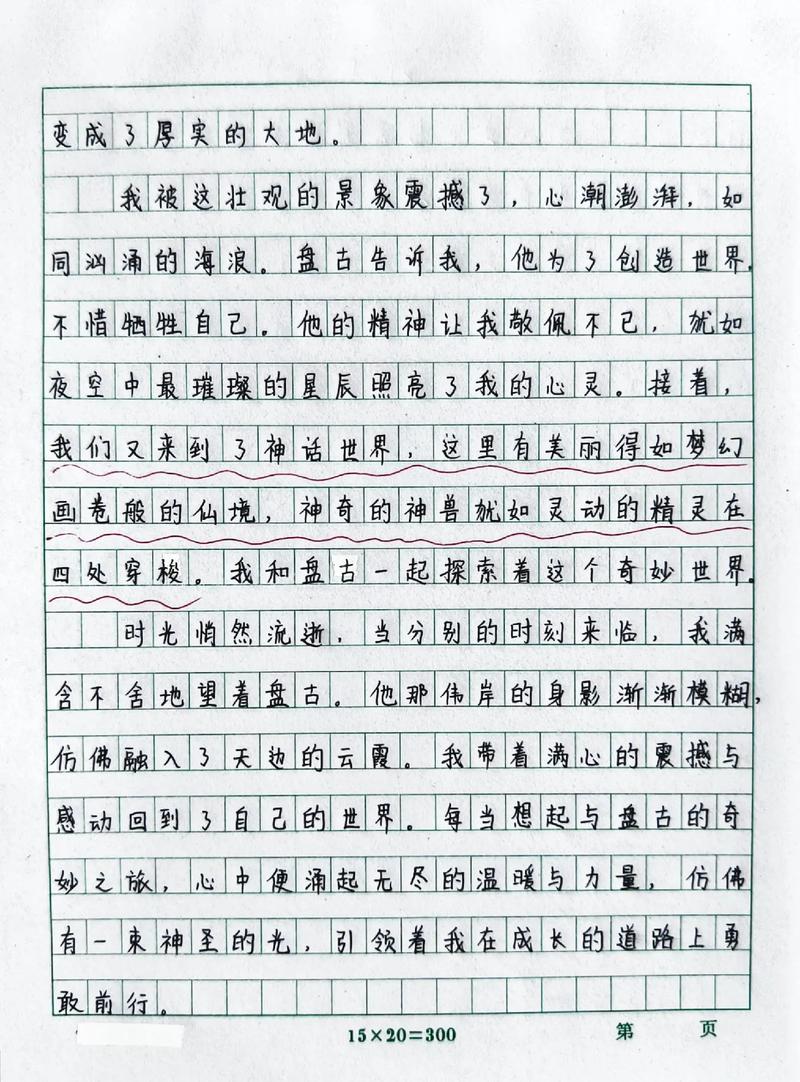 变成了厚实的大地。
我被这壮观的景象震撼了，心潮澎湃，如
同汹涌的海浪。盘古告诉我，他为了创造世界，
不惜牺牲自己。他的精神让我敬佩不已，犹如
夜空中最璀璨的星辰照亮了我的心灵。接着，
我们又来到了神话世界，这里有美丽得如梦幻
画卷般的仙境，神奇的神兽犹如灵动的精灵在
四处穿梭。我和盘古一起探索着这个奇妙世界。
时光悄然流逝，当分别的时刻来临，我满
含不舍地望着盘古。他那伟岸的身影渐渐模糊，
仿佛融入了天边的云霞。我带着满心的震撼与
感动回到了自己的世界。每当想起与盘古的奇
妙之旅，心中便涌起无尽的温暖与力量，仿佛
有一束神圣的光，引领着我在成长的道路上勇
敢前行。
15×20=300 第 页